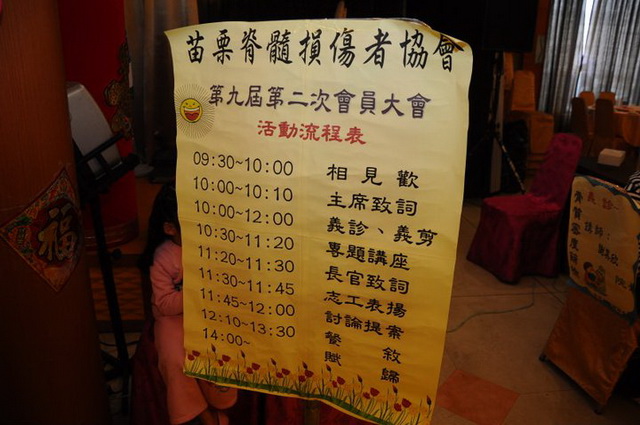 苗栗脊髓損傷者協會
第九屆第二次會員大會
活動流程表
09:30~10:00 相見歡
10:00~10:10 主席致詞
10:00~12:00 義診、義剪
10:30~11:20 專題講座
11:20~11:30 長官致詞
11:30~11:45 志工表揚
11:45~12:00 討論提案
12:10~13:30 餐敘
14:00~ 賦歸
福
義診
骨質密度